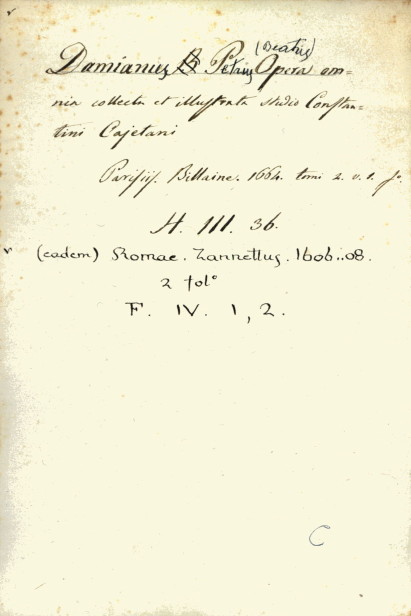 Damianus B Petrus (Beatus) Opera om=
nia collecta et illustrata studio Constan=
tini Cajetani
Parisiis. Billaine. 1664. tomi 2. v. 1. fo.
H. III. 36.
v (eadem) Romae. Zannettus. 1606..08.
2 fol°
F. IV. 1, 2.
C